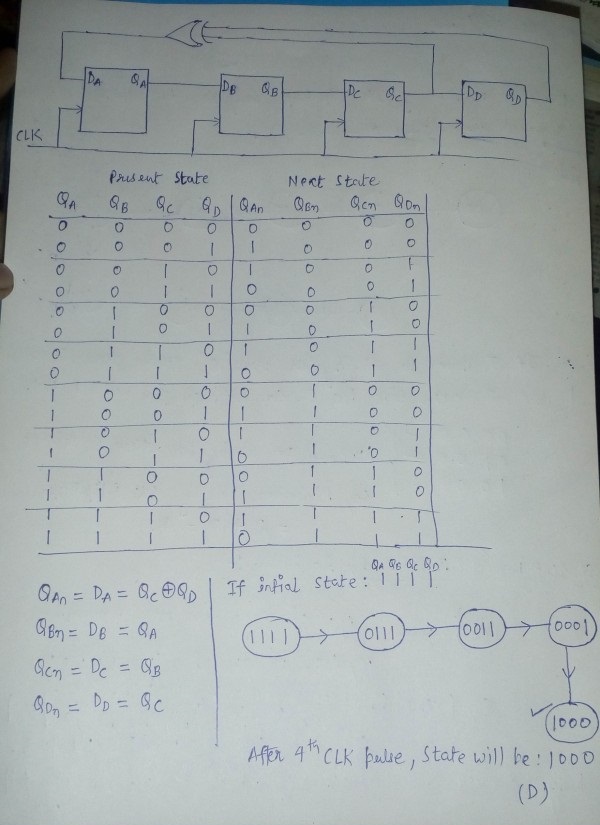 DA QA DB QB DC QC DD QD
CLK
Present State Next State
QA QB QC QD QAn QBn QCn QDn
0 0 0 0 0 0 0 0
0 0 0 1 1 0 0 0
0 0 1 0 1 0 0 1
0 0 1 1 0 0 0 1
0 1 0 0 0 0 1 0
0 1 0 1 1 0 1 0
0 1 1 0 1 0 1 1
0 1 1 1 0 0 1 1
1 0 0 0 0 1 0 0
1 0 0 1 1 1 0 0
1 0 1 0 1 1 0 1
1 0 1 1 0 1 0 1
1 1 0 0 0 1 1 0
1 1 0 1 1 1 1 0
1 1 1 0 1 1 1 1
1 1 1 1 0 1 1 1
QAn = DA = QC ⊕ QD
QBn = DB = QA
QCn = DC = QB
QDn = DD = QC
QA QB QC QD:
If intial state: 1 1 1 1
1111 0111 0011 0001
1000
After 4th CLK pulse, State will be: 1000
(D)